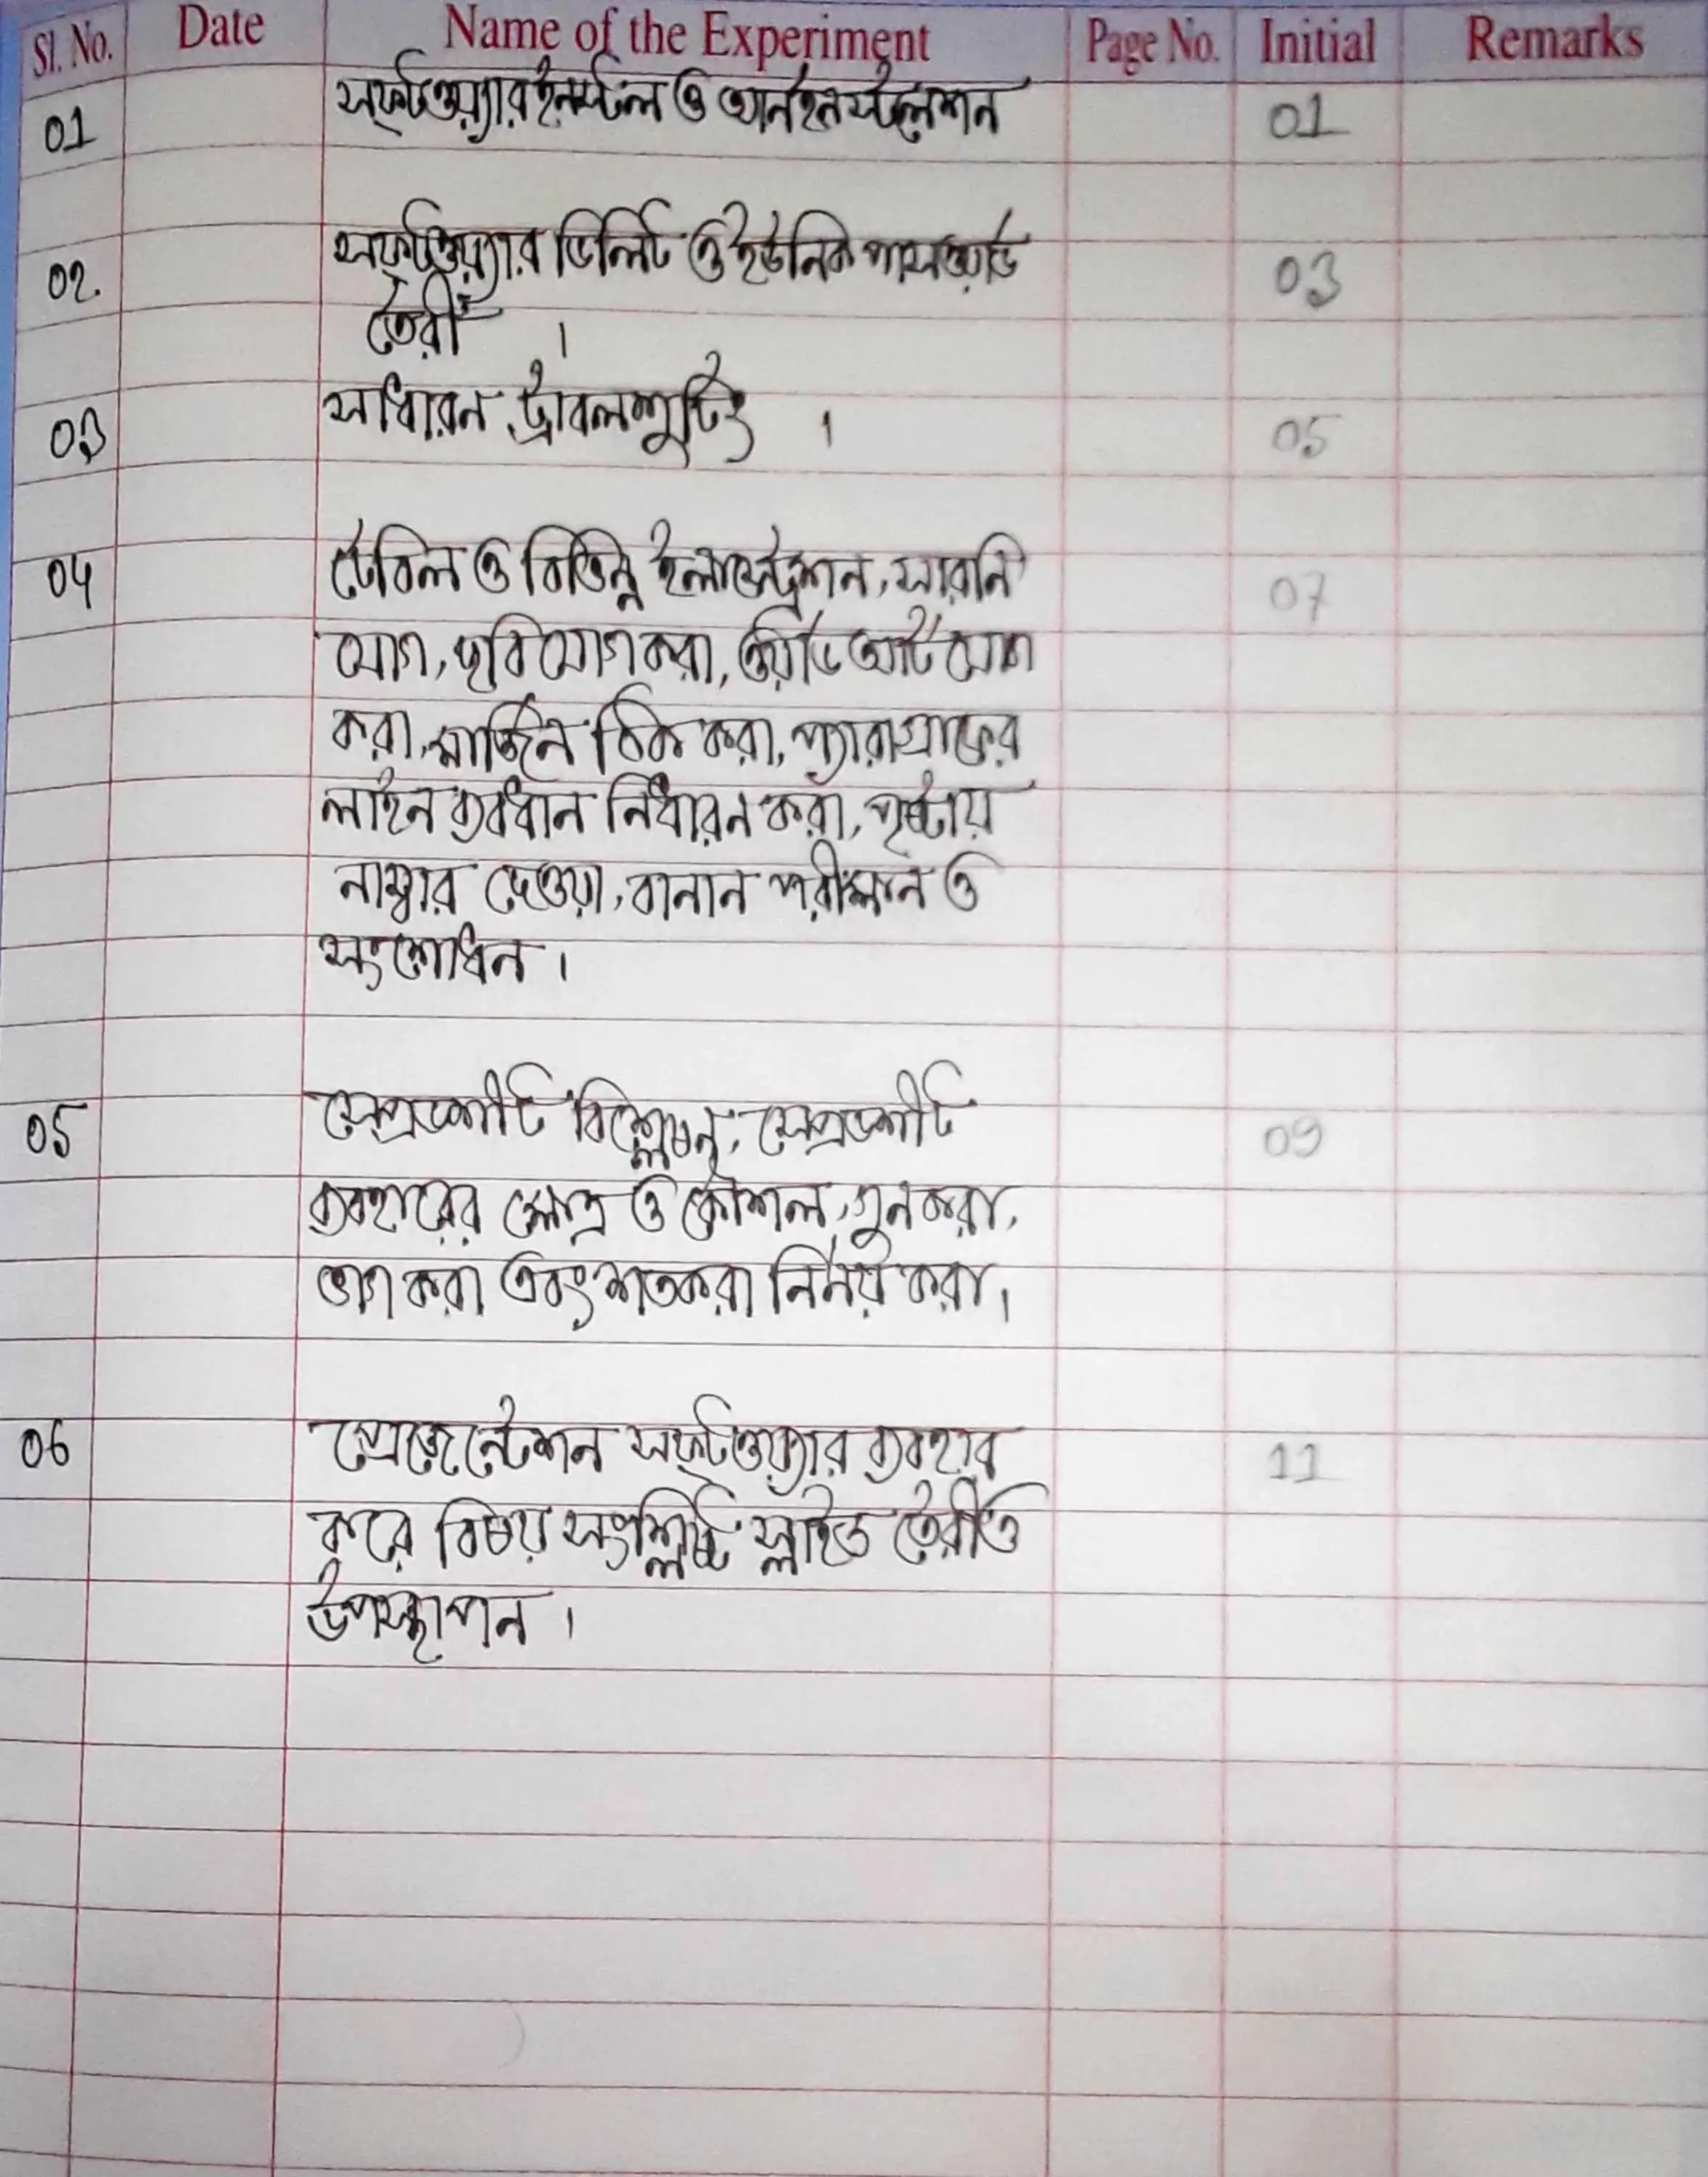 Sl. No. Date Name of the Experiment Page No. Initial Remarks
01 সফ্টওয়্যার ইনস্টল ও আনইনস্টলেশন 01
02. সফ্টওয়্যার ডিলিট ও ইউনিক পাসওয়ার্ড 03
তৈরী ।
03 সাধারন ট্রাবলশুটিং । 05
04 টেবিল ও বিভিন্ন ইলাস্ট্রেশন, সারনি 07
যোগ, ছবি যোগ করা, ওয়ার্ড আর্ট যোগ
করা, মার্জিন ঠিক করা, প্যারাগ্রাফের
লাইন ব্যবধান নির্ধারন করা, পৃষ্টায়
নাম্বার দেওয়া, বানান পরীক্ষন ও
সংশোধন ।
05 স্প্রেডশীট বিশ্লেষন, স্প্রেডশীট 09
ব্যবহারের ক্ষেত্র ও কৌশল, গুন করা,
ভাগ করা এবং শতকরা নির্নয় করা ।
06 প্রেজেন্টেশন সফ্টওয়্যার ব্যবহার 11
করে বিষয় সংশ্লিষ্ট স্লাইড তৈরী ও
উপস্থাপন ।